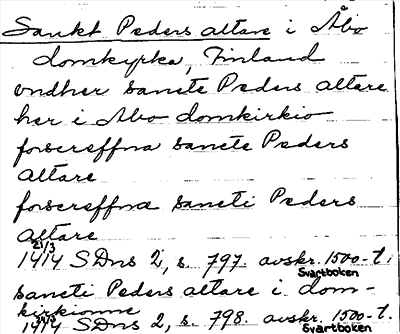 Sankt Peders altare i Åbo
domkyrka, Finland
vndher sancte Peders altare
her i Abo domkirkio
forscreffna sancte Peders
altare
forscreffna sancti Peders
altare
21/3
1414 SDns 2, s. 797. avskr. 1500-t.
Svartboken
sancti Peders altare i dom-
kirkionne
1414 SDns 2, s. 798. avskr. 1500-t.
Svartboken